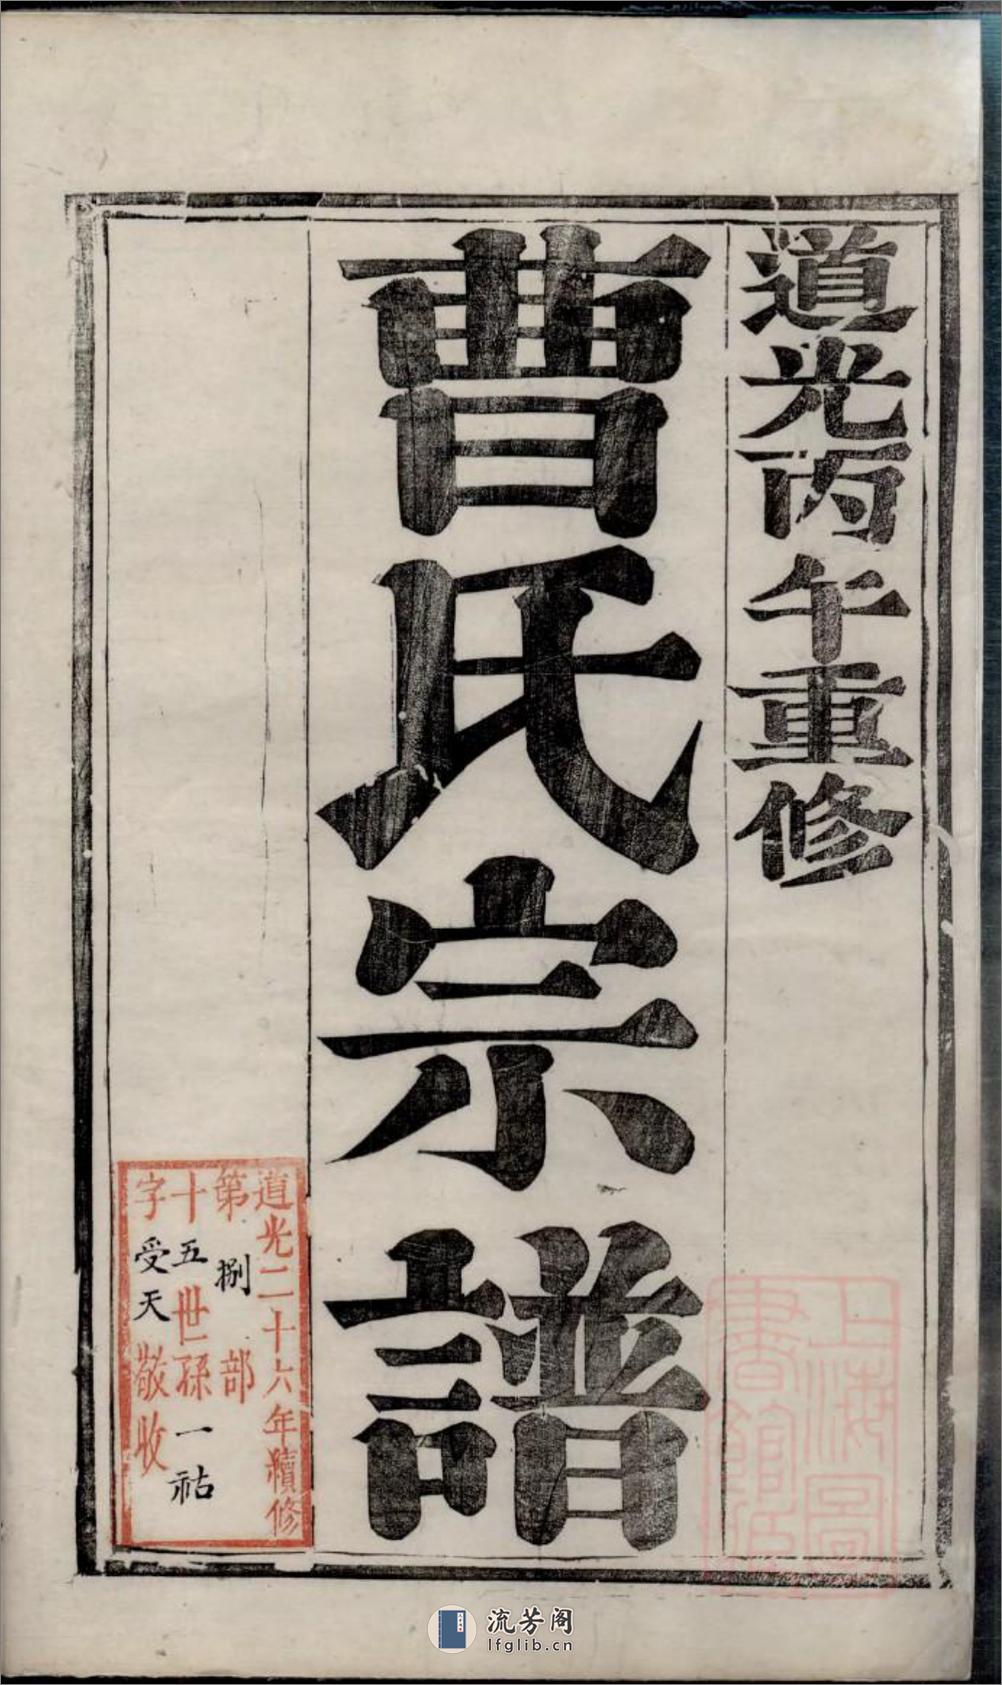 道光丙午重修
曹氏宗譜
道光二十六年續修
第捌部
十五世孫一祜
字受天敬收
上海圖
書館藏
流芳阁
lfglib.cn